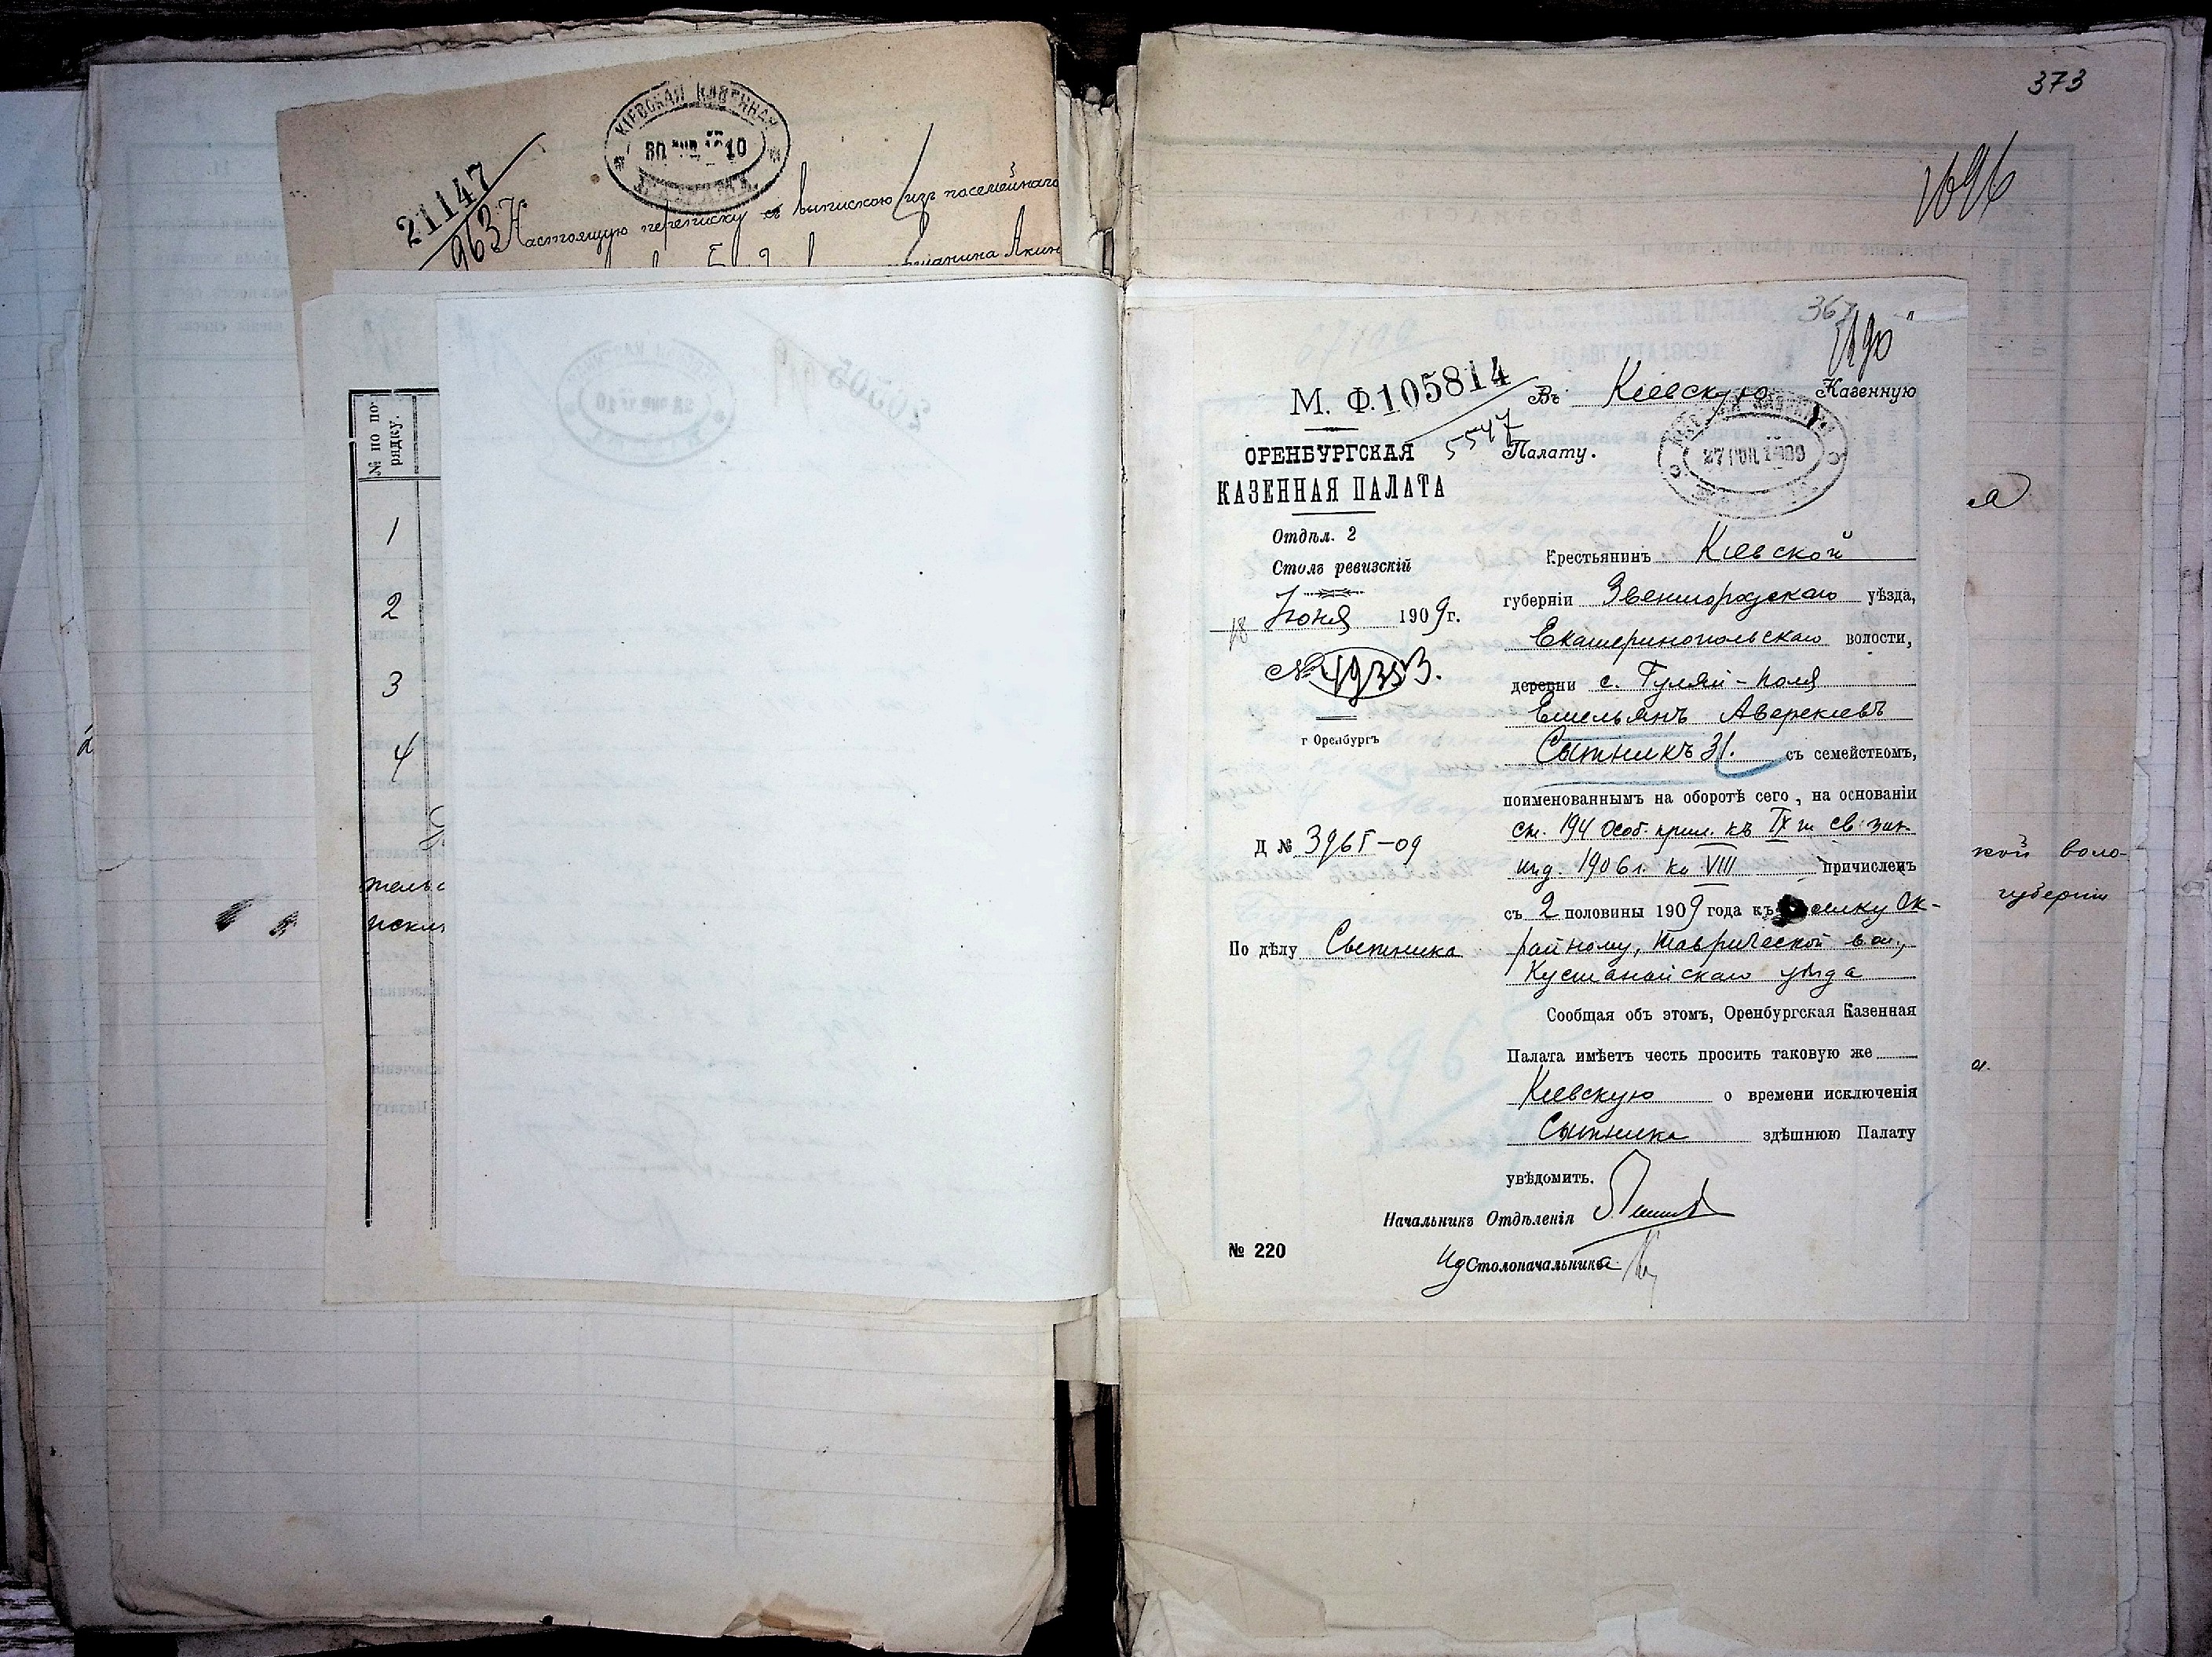 373
1696
КІЕВСКАЯ КАЗЕННАЯ
21147
963
Настоящую переписку съ выпискою изъ посемейнаго
№ по по-
рядку.
1
2
3
4
тельс
исклю
367
М. Ф. 105814
5547
Въ Кіевскую Казенную
Палату.
27 ІЮЛ. 1909
ОРЕНБУРГСКАЯ
КАЗЕННАЯ ПАЛАТА
Отдѣл. 2
Столъ ревизскій
18 Іюня 1909 г.
№ 49353.
г Оренбургъ
Д № 3965-09
По дѣлу Сытника
Крестьянинъ Кіевской
губерніи Звенигородскаго уѣзда,
Екатеринопольскаго волости,
деревни с. Гуляй-Поля
Емельянъ Аверкіевъ
Сытникъ 31. съ семействомъ,
поименованнымъ на оборотѣ сего, на основаніи
ст. 194 Особ. прил. къ IX т. св. зак.
изд. 1906 г. кн VIII причисленъ
съ 2 половины 1909 года къ поселку Ок-
райному, Таврической вол.,
Кустанайскаго уѣзда
Сообщая объ этомъ, Оренбургская Казенная
Палата имѣетъ честь просить таковую же
Кіевскую о времени исключенія
Сытника здѣшнюю Палату
увѣдомить.
Начальникъ Отдѣленія
Ид Столоначальника
№ 220
кой воло-
губерніи